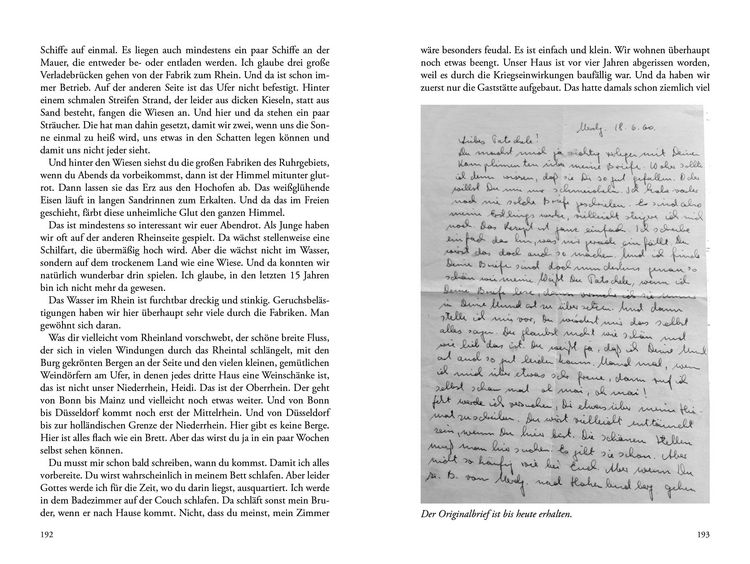 Schiffe auf einmal. Es liegen auch mindestens ein paar Schiffe an der
Mauer, die entweder be- oder entladen werden. Ich glaube drei große
Verladebrücken gehen von der Fabrik zum Rhein. Und da ist schon im-
mer Betrieb. Auf der anderen Seite ist das Ufer nicht befestigt. Hinter
einem schmalen Streifen Strand, der leider aus dicken Kieseln, statt aus
Sand besteht, fangen die Wiesen an. Und hier und da stehen ein paar
Sträucher. Die hat man dahin gesetzt, damit wir zwei, wenn uns die Son-
ne einmal zu heiß wird, uns etwas in den Schatten legen können und
damit uns nicht jeder sieht.
Und hinter den Wiesen siehst du die großen Fabriken des Ruhrgebiets,
wenn du Abends da vorbeikommst, dann ist der Himmel mitunter glut-
rot. Dann lassen sie das Erz aus den Hochofen ab. Das weißglühende
Eisen läuft in langen Sandrinnen zum Erkalten. Und da das im Freien
geschieht, färbt diese unheimliche Glut den ganzen Himmel.
Das ist mindestens so interessant wir euer Abendrot. Als Junge haben
wir oft auf der anderen Rheinseite gespielt. Da wächst stellenweise eine
Schilfart, die übermäßig hoch wird. Aber die wächst nicht im Wasser,
sondern auf dem trockenem Land wie eine Wiese. Und da konnten wir
natürlich wunderbar drin spielen. Ich glaube, in den letzten 15 Jahren
bin ich nicht mehr da gewesen.
Das Wasser im Rhein ist furchtbar dreckig und stinkig. Geruchsbeläs-
tigungen haben wir hier überhaupt sehr viele durch die Fabriken. Man
gewöhnt sich daran.
Was dir vielleicht vom Rheinland vorschwebt, der schöne breite Fluss,
der sich in vielen Windungen durch das Rheintal schlängelt, mit den
Burg gekrönten Bergen an der Seite und den vielen kleinen, gemütlichen
Weindörfern am Ufer, in denen jedes dritte Haus eine Weinschänke ist,
das ist nicht unser Niederrhein, Heidi. Das ist der Oberrhein. Der geht
von Bonn bis Mainz und vielleicht noch etwas weiter. Und von Bonn
bis Düsseldorf kommt noch erst der Mittelrhein. Und von Düsseldorf
bis zur holländischen Grenze der Niederrhein. Hier gibt es keine Berge.
Hier ist alles flach wie ein Brett. Aber das wirst du ja in ein paar Wochen
selbst sehen können.
Du musst mir schon bald schreiben, wann du kommst. Damit ich alles
vorbereite. Du wirst wahrscheinlich in meinem Bett schlafen. Aber leider
Gottes werde ich für die Zeit, wo du darin liegst, ausquartiert. Ich werde
in dem Badezimmer auf der Couch schlafen. Da schläft sonst mein Bru-
der, wenn er nach Hause kommt. Nicht, dass du meinst, mein Zimmer
192
wäre besonders feudal. Es ist einfach und klein. Wir wohnen überhaupt
noch etwas beengt. Unser Haus ist vor vier Jahren abgerissen worden,
weil es durch die Kriegseinwirkungen baufällig war. Und da haben wir
zuerst nur die Gaststätte aufgebaut. Das hatte damals schon ziemlich viel
18.6.60.
Liebes Patschele!
Du machst mich ja richtig verlegen mit Deinen
Komplimenten über meine Briefe. Woher sollte
ich denn wissen, daß sie Dir so gut gefallen. Oder
willst Du mir nur schmeicheln. Ich habe vorher
noch nie solche Briefe geschrieben. Es sind also
meine Erstlingswerke, vielleicht steiger ich mich
noch. Das Rezept ist ganz einfach. Ich schreibe
einfach das hin, was mir gerade einfällt. Du
wirst das doch auch so machen. Und ich finde
Deine Briefe sind doch mindestens genau so
schön wie meine. Weißt Du Patschele, wenn ich
Deine Briefe lese, dann versuche ich sie immer
in Deine Mundart zu übersetzen. Und dann
stelle ich mir vor, Du würdest mir das selbst
alles sagen. Du glaubst nicht wie schön und
wie lieb das ist. Du weißt ja, daß ich Deine Mund-
art auch so gut leiden kann. Manchmal, wenn
ich mich über etwas sehr freue, dann ruf ich
selbst schon mal oh mai, oh mai!
Jetzt werde ich versuchen, Dir etwas über meine Hei-
mat zu schreiben. Du wirst vielleicht enttäuscht
sein, wenn Du hier bist. Die schönen Stellen
muß man hier suchen. Es gibt sie schon. Aber
nicht so häufig wie bei Euch. Aber wenn Du
z. B. von nach Hohenbudberg gehen
Der Originalbrief ist bis heute erhalten.
193